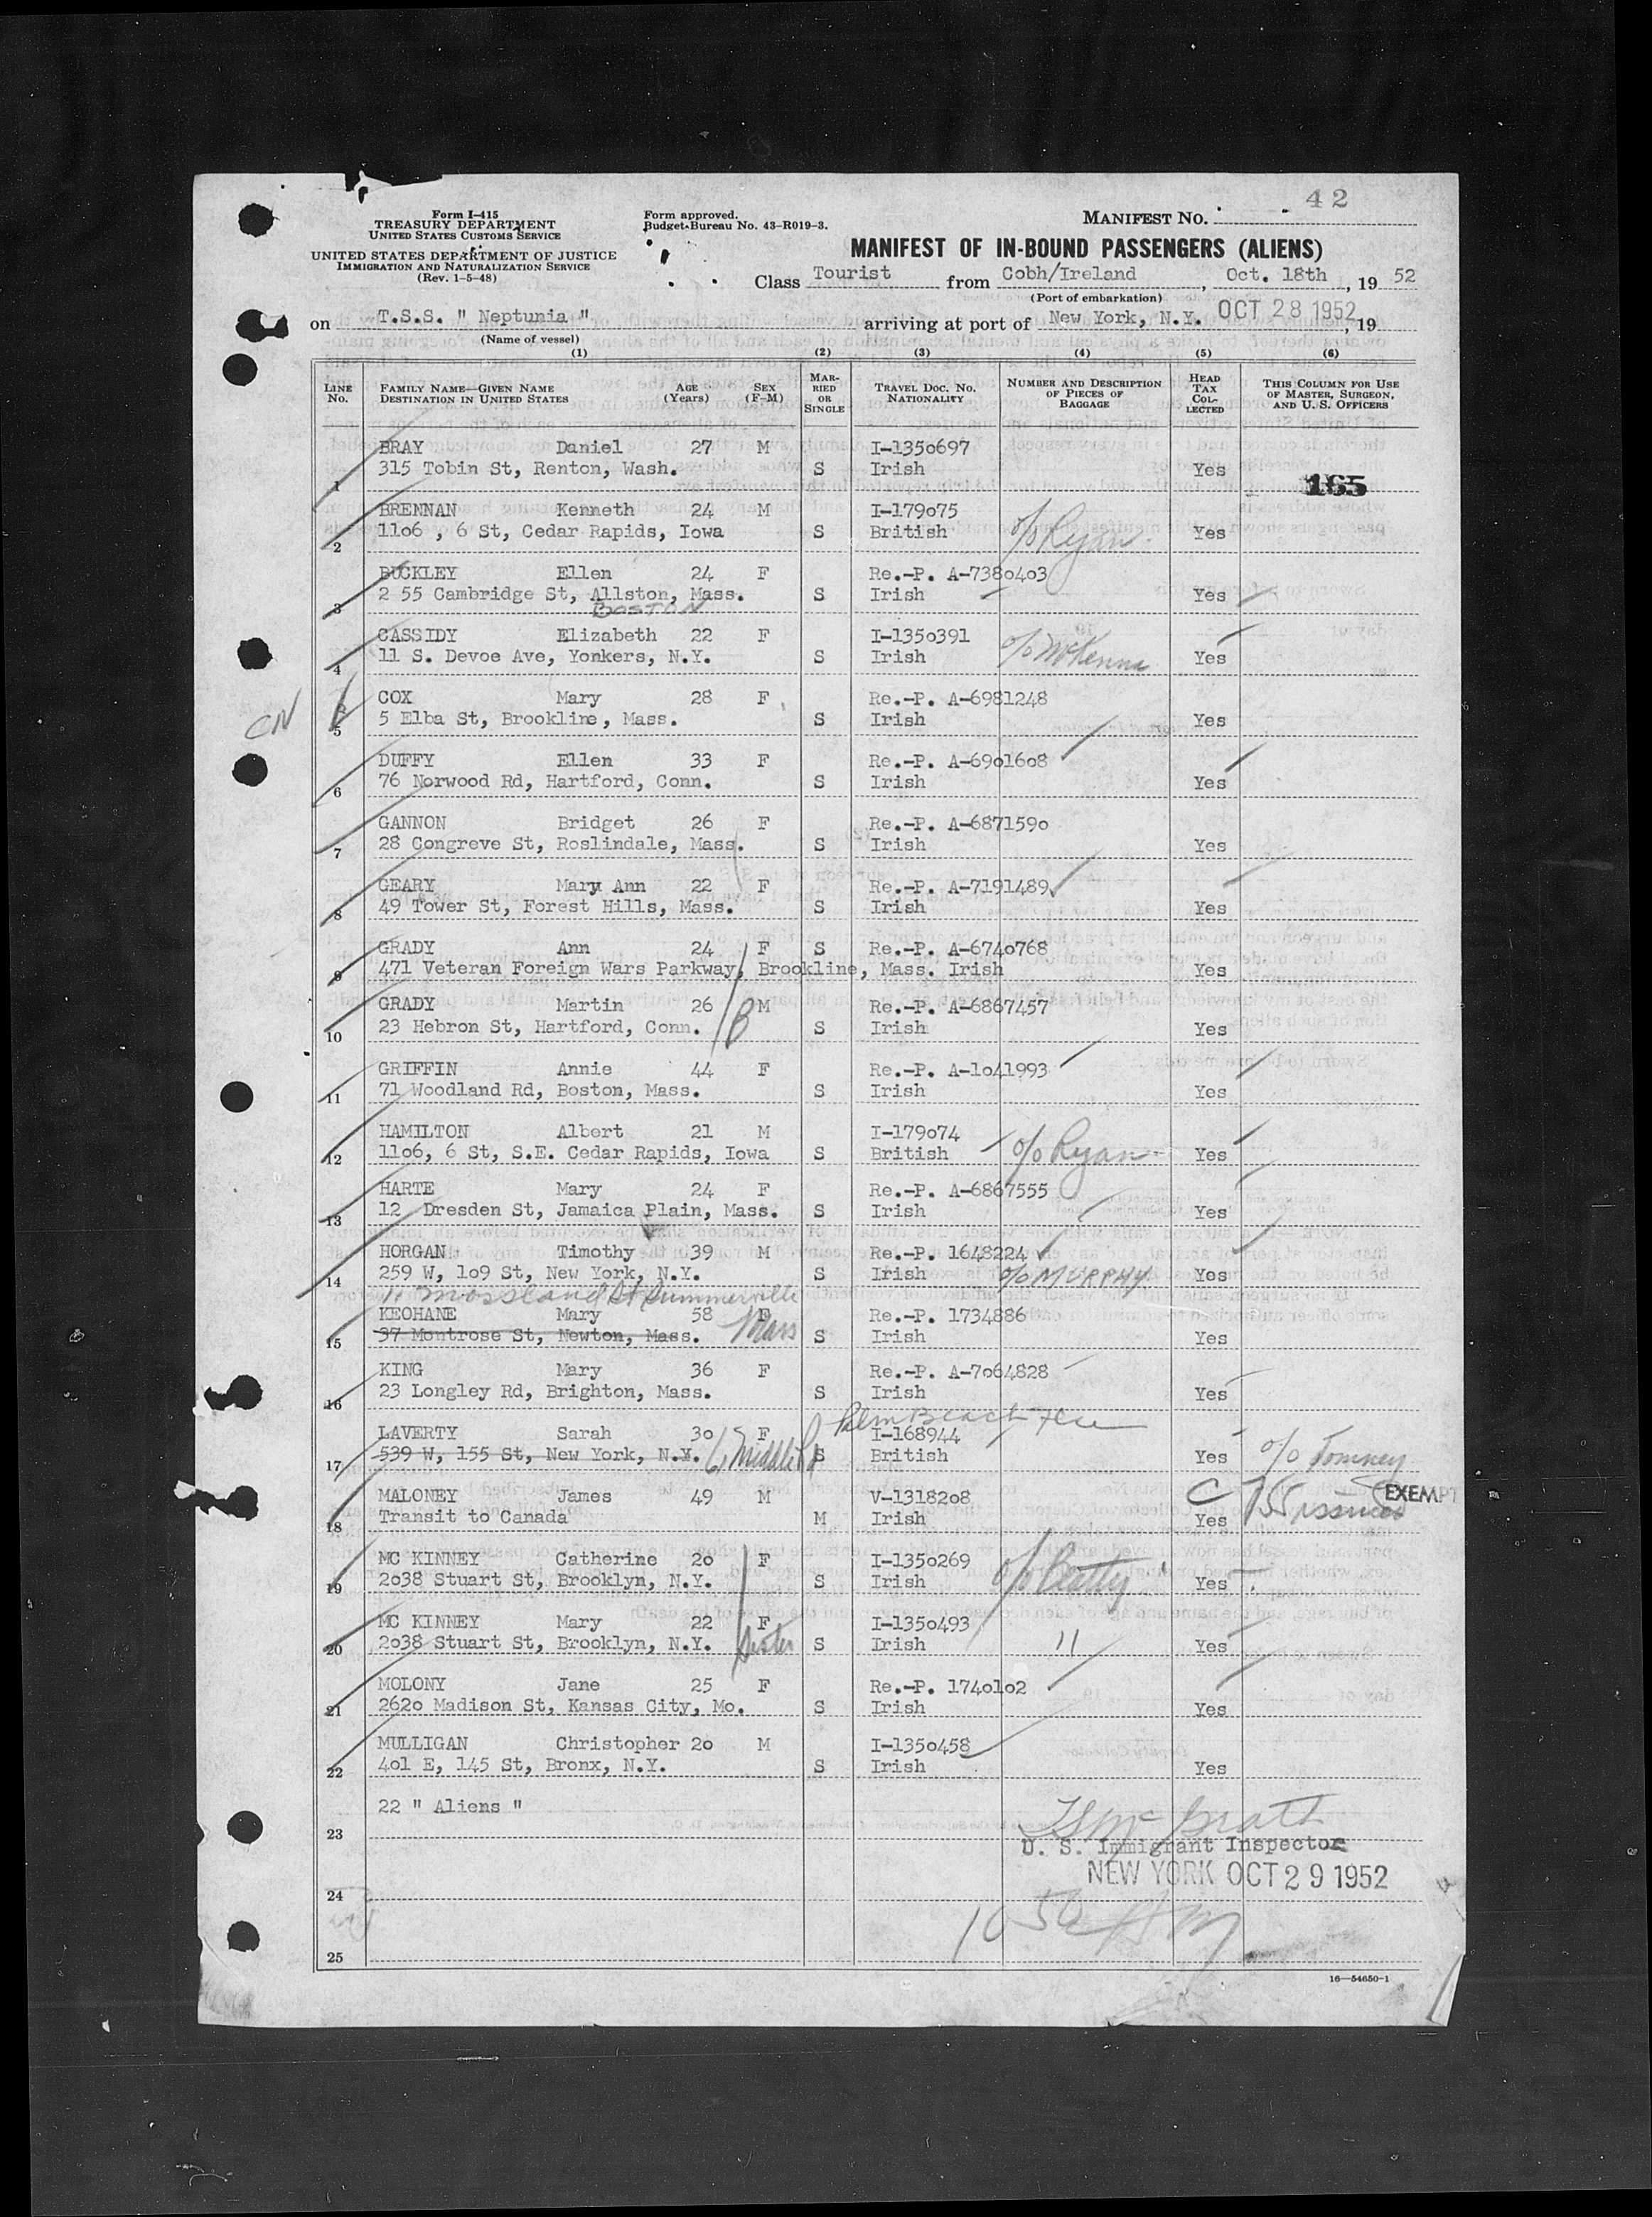 42
Form I-415
TREASURY DEPARTMENT
UNITED STATES CUSTOMS SERVICE
UNITED STATES DEPARTMENT OF JUSTICE
IMMIGRATION AND NATURALIZATION SERVICE
(Rev. 1-5-48)
Form approved.
Budget Bureau No. 43-R019-3.
MANIFEST NO.
MANIFEST OF IN-BOUND PASSENGERS (ALIENS)
Class Tourist from Cobh/Ireland, Oct. 18th, 19 52
(Port of embarkation)
on T.S.S. " Neptunia " arriving at port of New York, N.Y. OCT 28 1952, 19
(Name of vessel)
(1) (2) (3) (4) (5) (6)
LINE NO. FAMILY NAME—GIVEN NAME DESTINATION IN UNITED STATES AGE (YEARS) SEX (F-M) MARRIED OR SINGLE TRAVEL DOC. NO. NATIONALITY NUMBER AND DESCRIPTION OF PIECES OF BAGGAGE HEAD TAX COLLECTED THIS COLUMN FOR USE OF MASTER, SURGEON, AND U. S. OFFICERS
BRAY Daniel 27 M I-1350697
1 315 Tobin St, Renton, Wash. S Irish Yes 165
BRENNAN Kenneth 24 M I-179075
2 1106 , 6 St, Cedar Rapids, Iowa S British o/o Ryan Yes
BUCKLEY Ellen 24 F Re.-P. A-7380403
3 2 55 Cambridge St, Allston, Mass. S Irish Yes
BOSTON
CASSIDY Elizabeth 22 F I-1350391
4 11 S. Devoe Ave, Yonkers, N.Y. S Irish o/o McKenna Yes
CN COX Mary 28 F Re.-P. A-6981248
5 5 Elba St, Brookline, Mass. S Irish Yes
DUFFY Ellen 33 F Re.-P. A-6901608
6 76 Norwood Rd, Hartford, Conn. S Irish Yes
GANNON Bridget 26 F Re.-P. A-6871590
7 28 Congreve St, Roslindale, Mass. S Irish Yes
GEARY Mary Ann 22 F Re.-P. A-7191489
8 49 Tower St, Forest Hills, Mass. S Irish Yes
GRADY Ann 24 F S Re.-P. A-6740768
9 471 Veteran Foreign Wars Parkway, Brookline, Mass. Irish Yes
GRADY Martin 26 M Re.-P. A-6867457
10 23 Hebron St, Hartford, Conn. B S Irish Yes
GRIFFIN Annie 44 F Re.-P. A-1041993
11 71 Woodland Rd, Boston, Mass. S Irish Yes
HAMILTON Albert 21 M I-179074
12 1106, 6 St, S.E. Cedar Rapids, Iowa S British o/o Ryan Yes
HARTE Mary 24 F Re.-P. A-6867555
13 12 Dresden St, Jamaica Plain, Mass. S Irish Yes
HORGAN Timothy 39 M Re.-P. 1648224
14 259 W, 109 St, New York, N.Y. S Irish o/o MURPHY Yes
11 Mossland St Summerville
KEOHANE Mary 58 F Re.-P. 1734886
15 37 Montrose St, Newton, Mass. Mass S Irish Yes
KING Mary 36 F Re.-P. A-7064828
16 23 Longley Rd, Brighton, Mass. S Irish Yes
Palm Beach
LAVERTY Sarah 30 F I-168944
17 539 W, 155 St, New York, N.Y. 6, Middle Rd S British Yes o/o Tomney
MALONEY James 49 M V-1318208 C 755 issued EXEMPT
18 Transit to Canada M Irish Yes
MC KINNEY Catherine 20 F I-1350269
19 2038 Stuart St, Brooklyn, N.Y. S Irish o/o Beatty Yes
MC KINNEY Mary 22 F I-1350493
20 2038 Stuart St, Brooklyn, N.Y. Sister S Irish 11 Yes
MOLONY Jane 25 F Re.-P. 1740102
21 2620 Madison St, Kansas City, Mo. S Irish Yes
MULLIGAN Christopher 20 M I-1350458
22 401 E, 145 St, Bronx, N.Y. S Irish Yes
22 " Aliens "
23
U. S. Immigrant Inspector
NEW YORK OCT 29 1952
24
25
16—54650-1